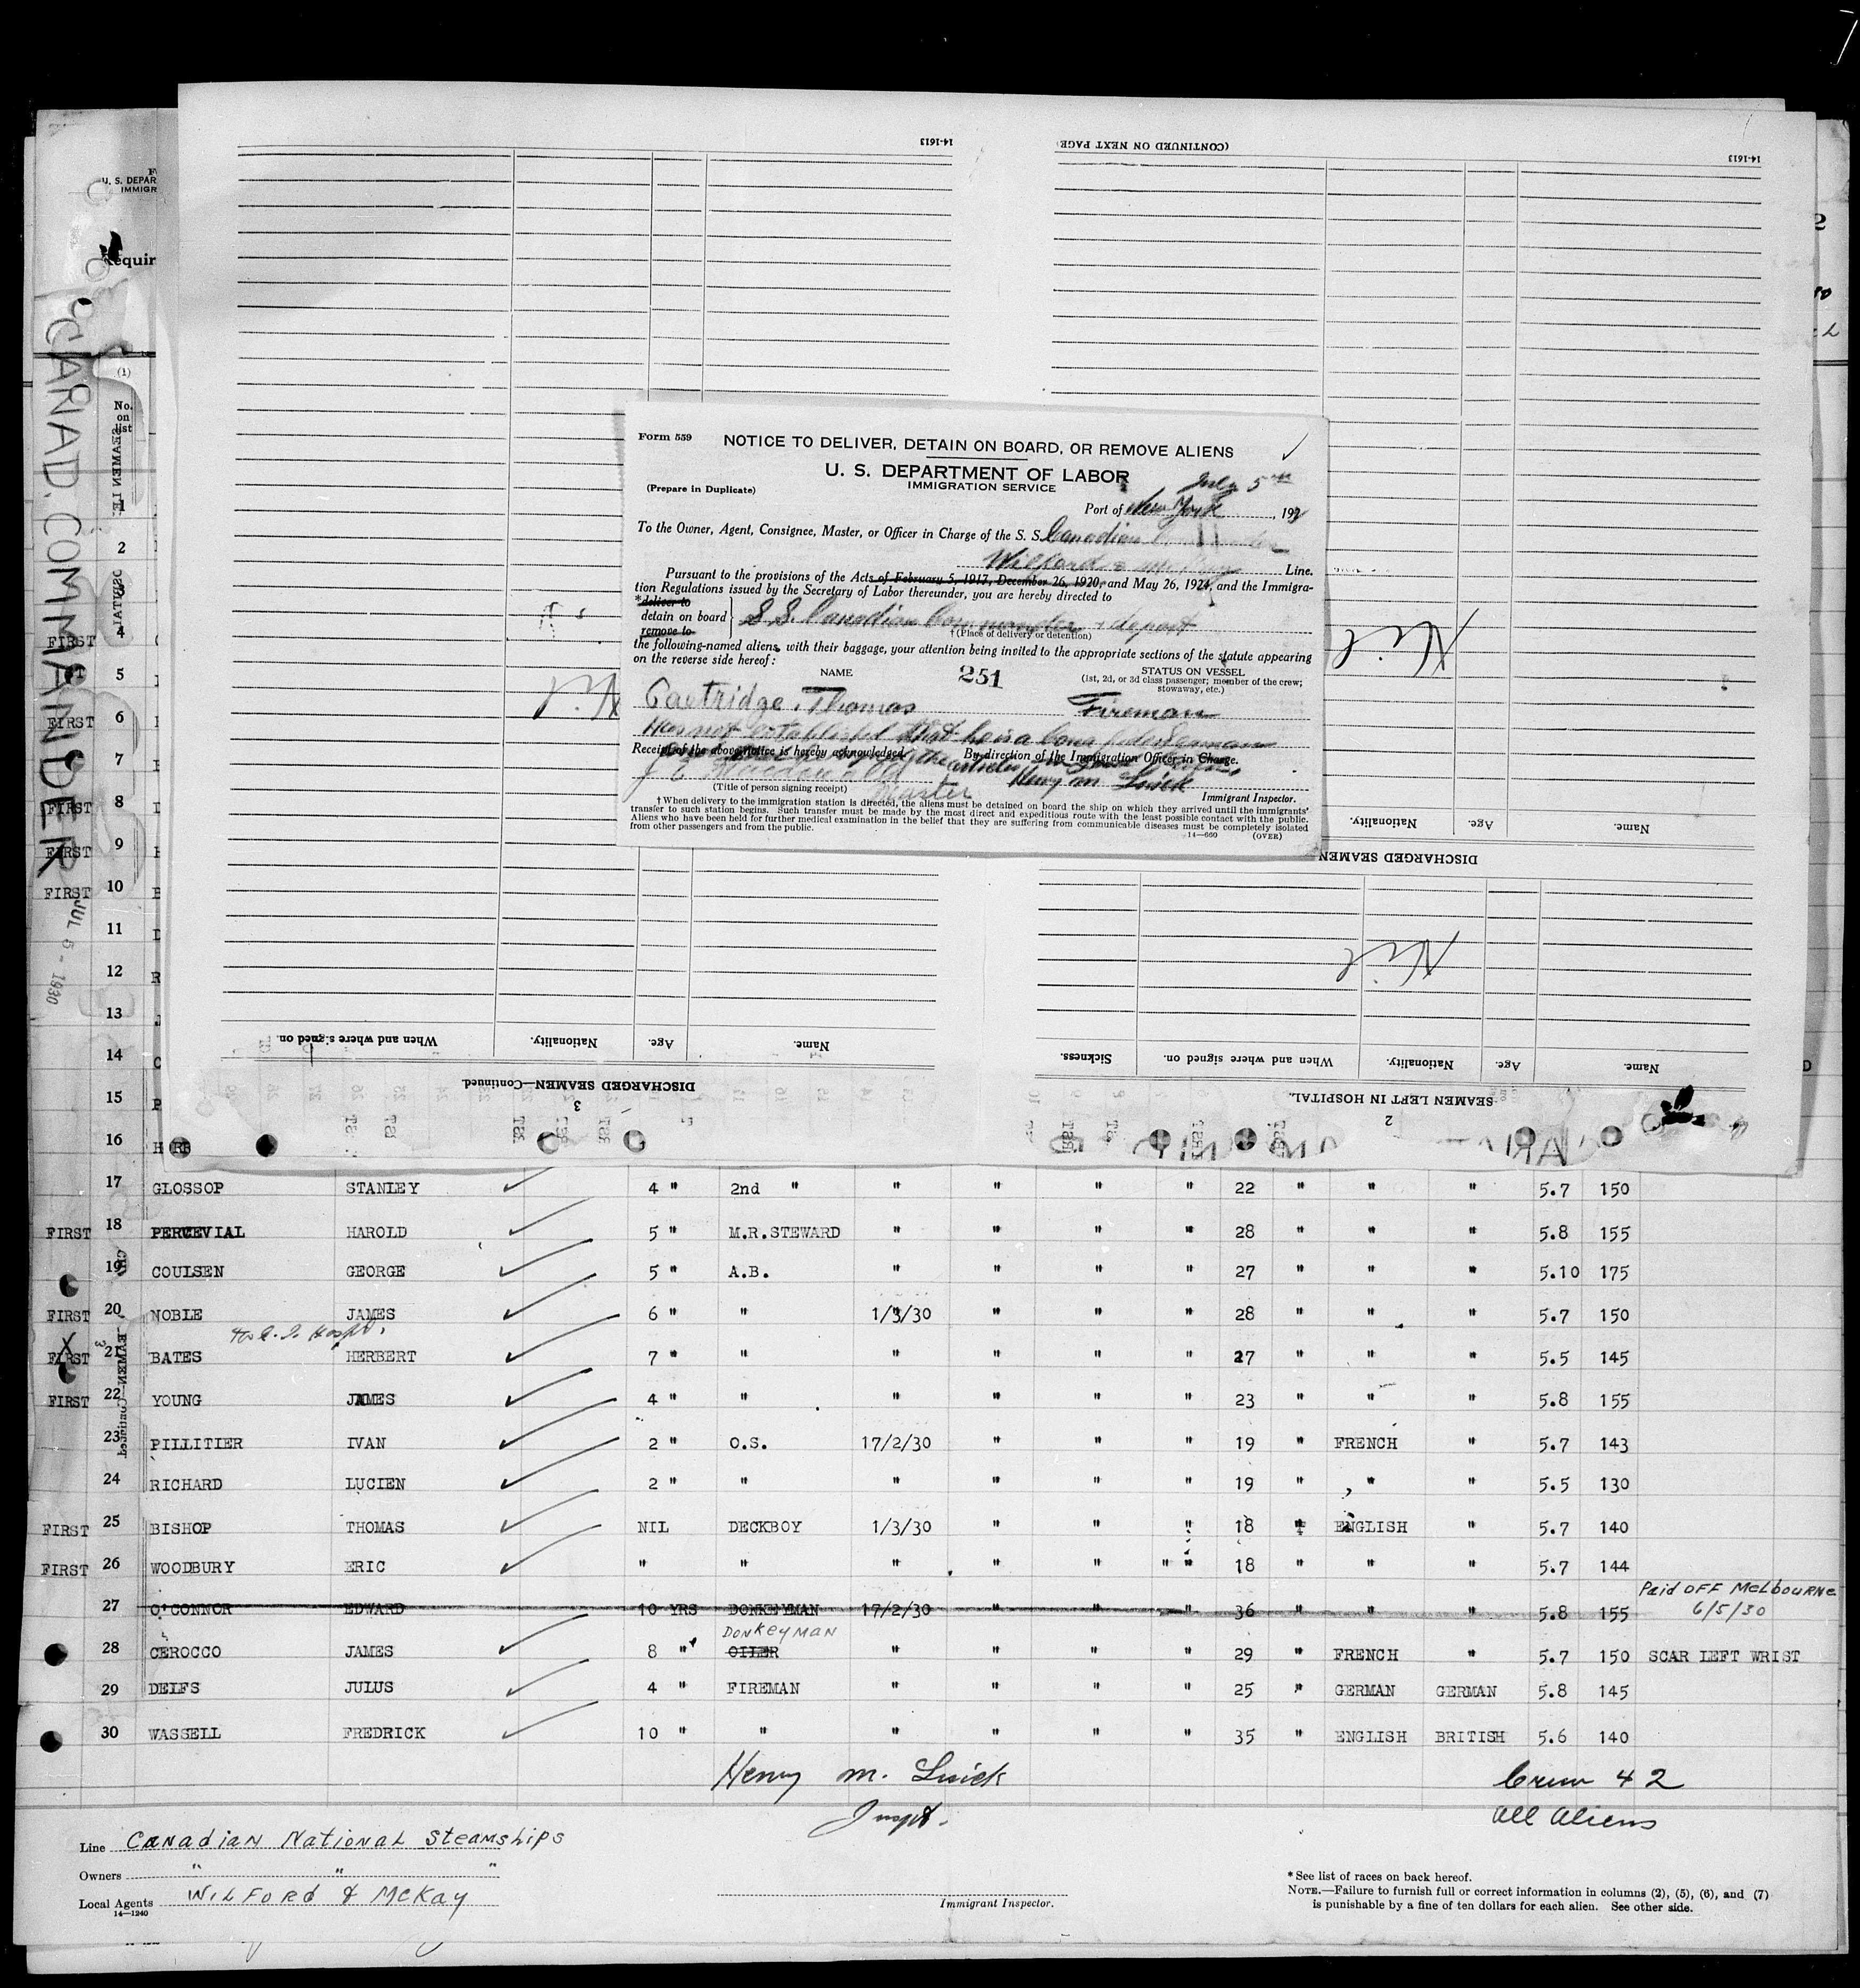 14-1613
(CONTINUED ON NEXT PAGE)
14-1613
U. S. DEPAR
IMMIGR
equir
CANAD. COMMANDER
JUL 5 - 1930
(1)
No. on list
Form 559
NOTICE TO DELIVER, DETAIN ON BOARD, OR REMOVE ALIENS
U. S. DEPARTMENT OF LABOR
IMMIGRATION SERVICE
(Prepare in Duplicate)
July 5th
Port of New York, 193
To the Owner, Agent, Consignee, Master, or Officer in Charge of the S. S. Canadian
Wilford & McKay Line.
Pursuant to the provisions of the Acts of February 5, 1917, December 26, 1920, and May 26, 1924, and the Immigra-
tion Regulations issued by the Secretary of Labor thereunder, you are hereby directed to
*deliver to
detain on board S.S. Canadian Commander & deport
remove to
†(Place of delivery or detention)
the following-named aliens, with their baggage, your attention being invited to the appropriate sections of the statute appearing
on the reverse side hereof:
NAME 251 STATUS ON VESSEL
(1st, 2d, or 3d class passenger; member of the crew;
stowaway, etc.)
Cartridge, Thomas Fireman
Has not established that he is a bona fide seaman
Receipt of the above notice is hereby acknowledged. By direction of the Immigration Officer in Charge.
the articles
Henry M. Luick
(Title of person signing receipt) Master Immigrant Inspector.
† When delivery to the immigration station is directed, the aliens must be detained on board the ship on which they arrived until the immigrants'
transfer to such station begins. Such transfer must be made by the most direct and expeditious route with the least possible contact with the public.
Aliens who have been held for further medical examination in the belief that they are suffering from communicable diseases must be completely isolated
from other passengers and from the public. 14—660 (OVER)
Nil
Nil
Nil
Name. Age. Nationality.
DISCHARGED SEAMEN
When and where signed on. Nationality. Age. Name.
DISCHARGED SEAMEN—Continued.
3
Sickness. When and where signed on. Nationality. Age. Name.
SEAMEN LEFT IN HOSPITAL.
2
1
2
3
FIRST 4
5
FIRST 6
7
FIRST 8
FIRST 9
FIRST 10
11
12
13
14
15
16
17 GLOSSOP STANLEY 4 " 2nd " " " " " 22 " " " 5.7 150
FIRST 18 PERCEVIAL HAROLD 5 " M.R.STEWARD " " " " 28 " " " 5.8 155
19 COULSEN GEORGE 5 " A.B. " " " " 27 " " " 5.10 175
FIRST 20 NOBLE JAMES 6 " " 1/3/30 " " " 28 " " " 5.7 150
FIRST 21 BATES HERBERT 7 " " " " " " 27 " " " 5.5 145
FIRST 22 YOUNG JAMES 4 " " " " " " 23 " " " 5.8 155
23 PILLITIER IVAN 2 " O.S. 17/2/30 " " " 19 " FRENCH " 5.7 143
24 RICHARD LUCIEN 2 " " " " " " 19 " " " 5.5 130
FIRST 25 BISHOP THOMAS NIL DECKBOY 1/3/30 " " " 18 " ENGLISH " 5.7 140
FIRST 26 WOODBURY ERIC " " " " " " " 18 " " " 5.7 144
27 O'CONNOR EDWARD 10 YRS DONKEYMAN 17/2/30 " " " 36 " " " 5.8 155 Paid OFF MELBOURNE 6/5/30
DONKEYMAN
28 CEROCCO JAMES 8 " OILER " " " " 29 " FRENCH " 5.7 150 SCAR LEFT WRIST
29 DEIFS JULUS 4 " FIREMAN " " " " 25 " GERMAN GERMAN 5.8 145
30 WASSELL FREDRICK 10 " " " " " " 35 " ENGLISH BRITISH 5.6 140
Henry M. Luick
Inspt.
Crew 42
All Aliens
Line CANADIAN NATIONAL STEAMSHIPS
Owners " " "
Local Agents WILFORD & MCKAY
14—1240
Immigrant Inspector.
* See list of races on back hereof.
NOTE.—Failure to furnish full or correct information in columns (2), (5), (6), and (7)
is punishable by a fine of ten dollars for each alien. See other side.